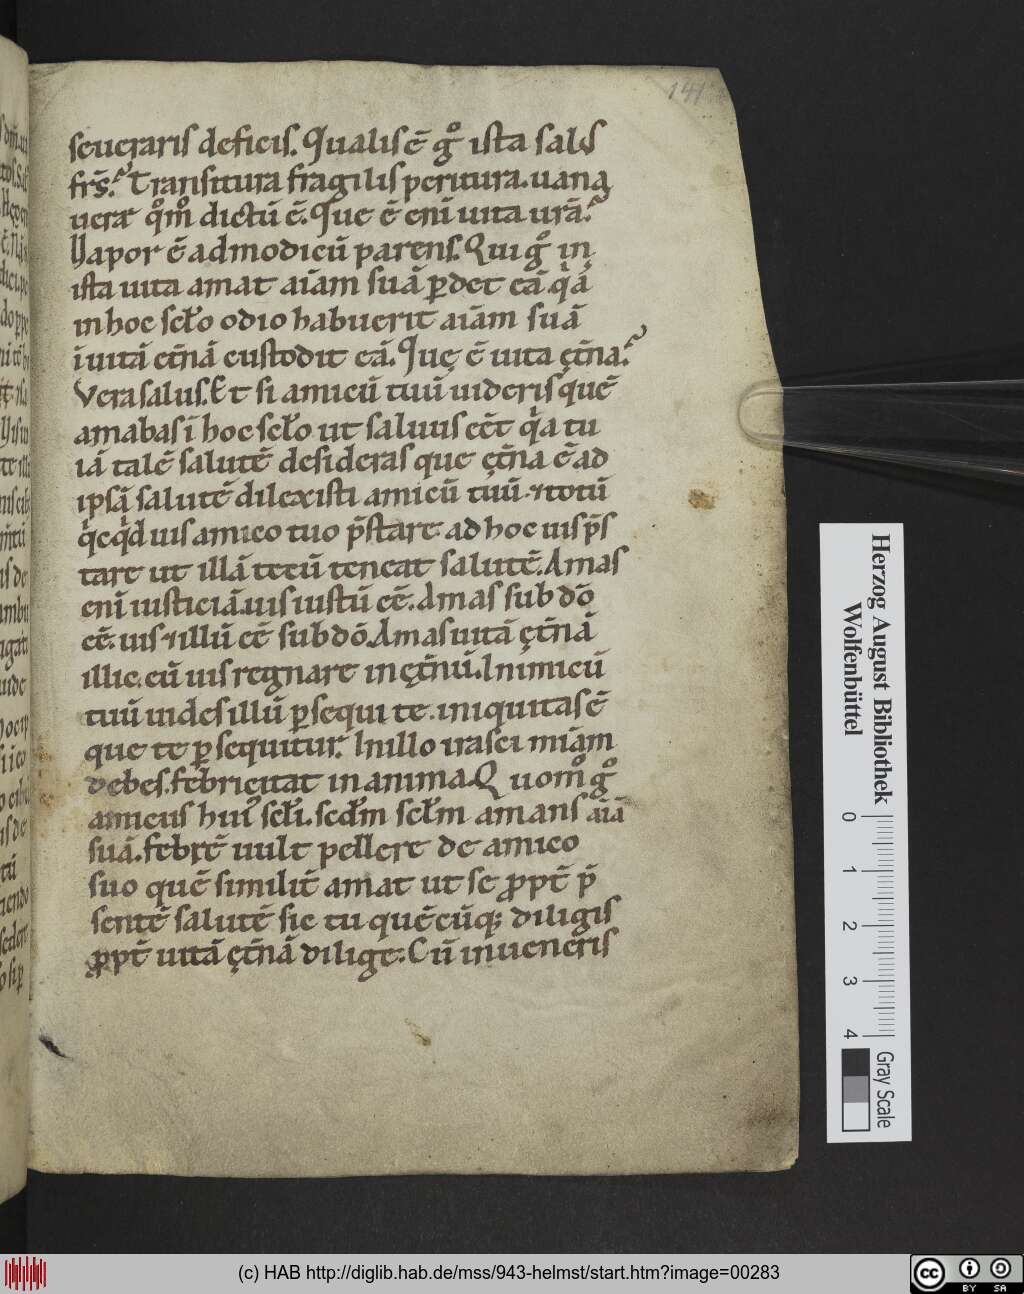 141
seueraris deficis. Qualis ē gͦ ista salus
frs̄. Transitura fragilis peritura. uana
uera qͦmͦ dictū ē. Que ē eni̅ uita urā.
Uapor ē ad modicū parens. Qui gͦ in
ista uita amat aiām suā ꝑdet eā. qͥa
in hoc sclo̅ odio habuerit aiām suā
ī uitā etn̄ā custodit eā. Que ē uita ęt̄na.
Vera salus. Et si amicū tuū uideris quē
amabas ī hoc sclo̅ ut saluus eēt qͥa tu
iā talē salutē desideras que ęt̄na ē ad
ipsā salutē dilexisti amicū tuū ⁊ totū
qͥcqͥd uis amico tuo p̄stare ad hoc uis p̄s
tare ut illā tecū teneat salutē. Amas
eni̅ iusticiā. uis iustū eē. Amas sub dō
eē. uis ⁊ illū eē sub dō. Amas uitā ęt̄nā
illic. cū uis regnare in ęt̄nū. Inimicū
tuū uides illū ꝑsequi te. iniquitas ē
que te ꝑsequitur. In illo irasci miām
debes. febricitat in anima. Quomͦ gͦ
amicus huiͥ scli̅. sed̄m scl̄m amans aiā
suā. febrē uult pellere de amico
suo quē similit̄ amat ut se ꝓpt̄ p̄
sentē salutē sic tu quēcūq; diligis
ꝓpt̄ uitā ęt̄nā dilige. Cū inueneris
Herzog August Bibliothek
Wolfenbüttel
0 1 2 3 4
Gray Scale
(c) HAB http://diglib.hab.de/mss/943-helmst/start.htm?image=00283
cc BY SA